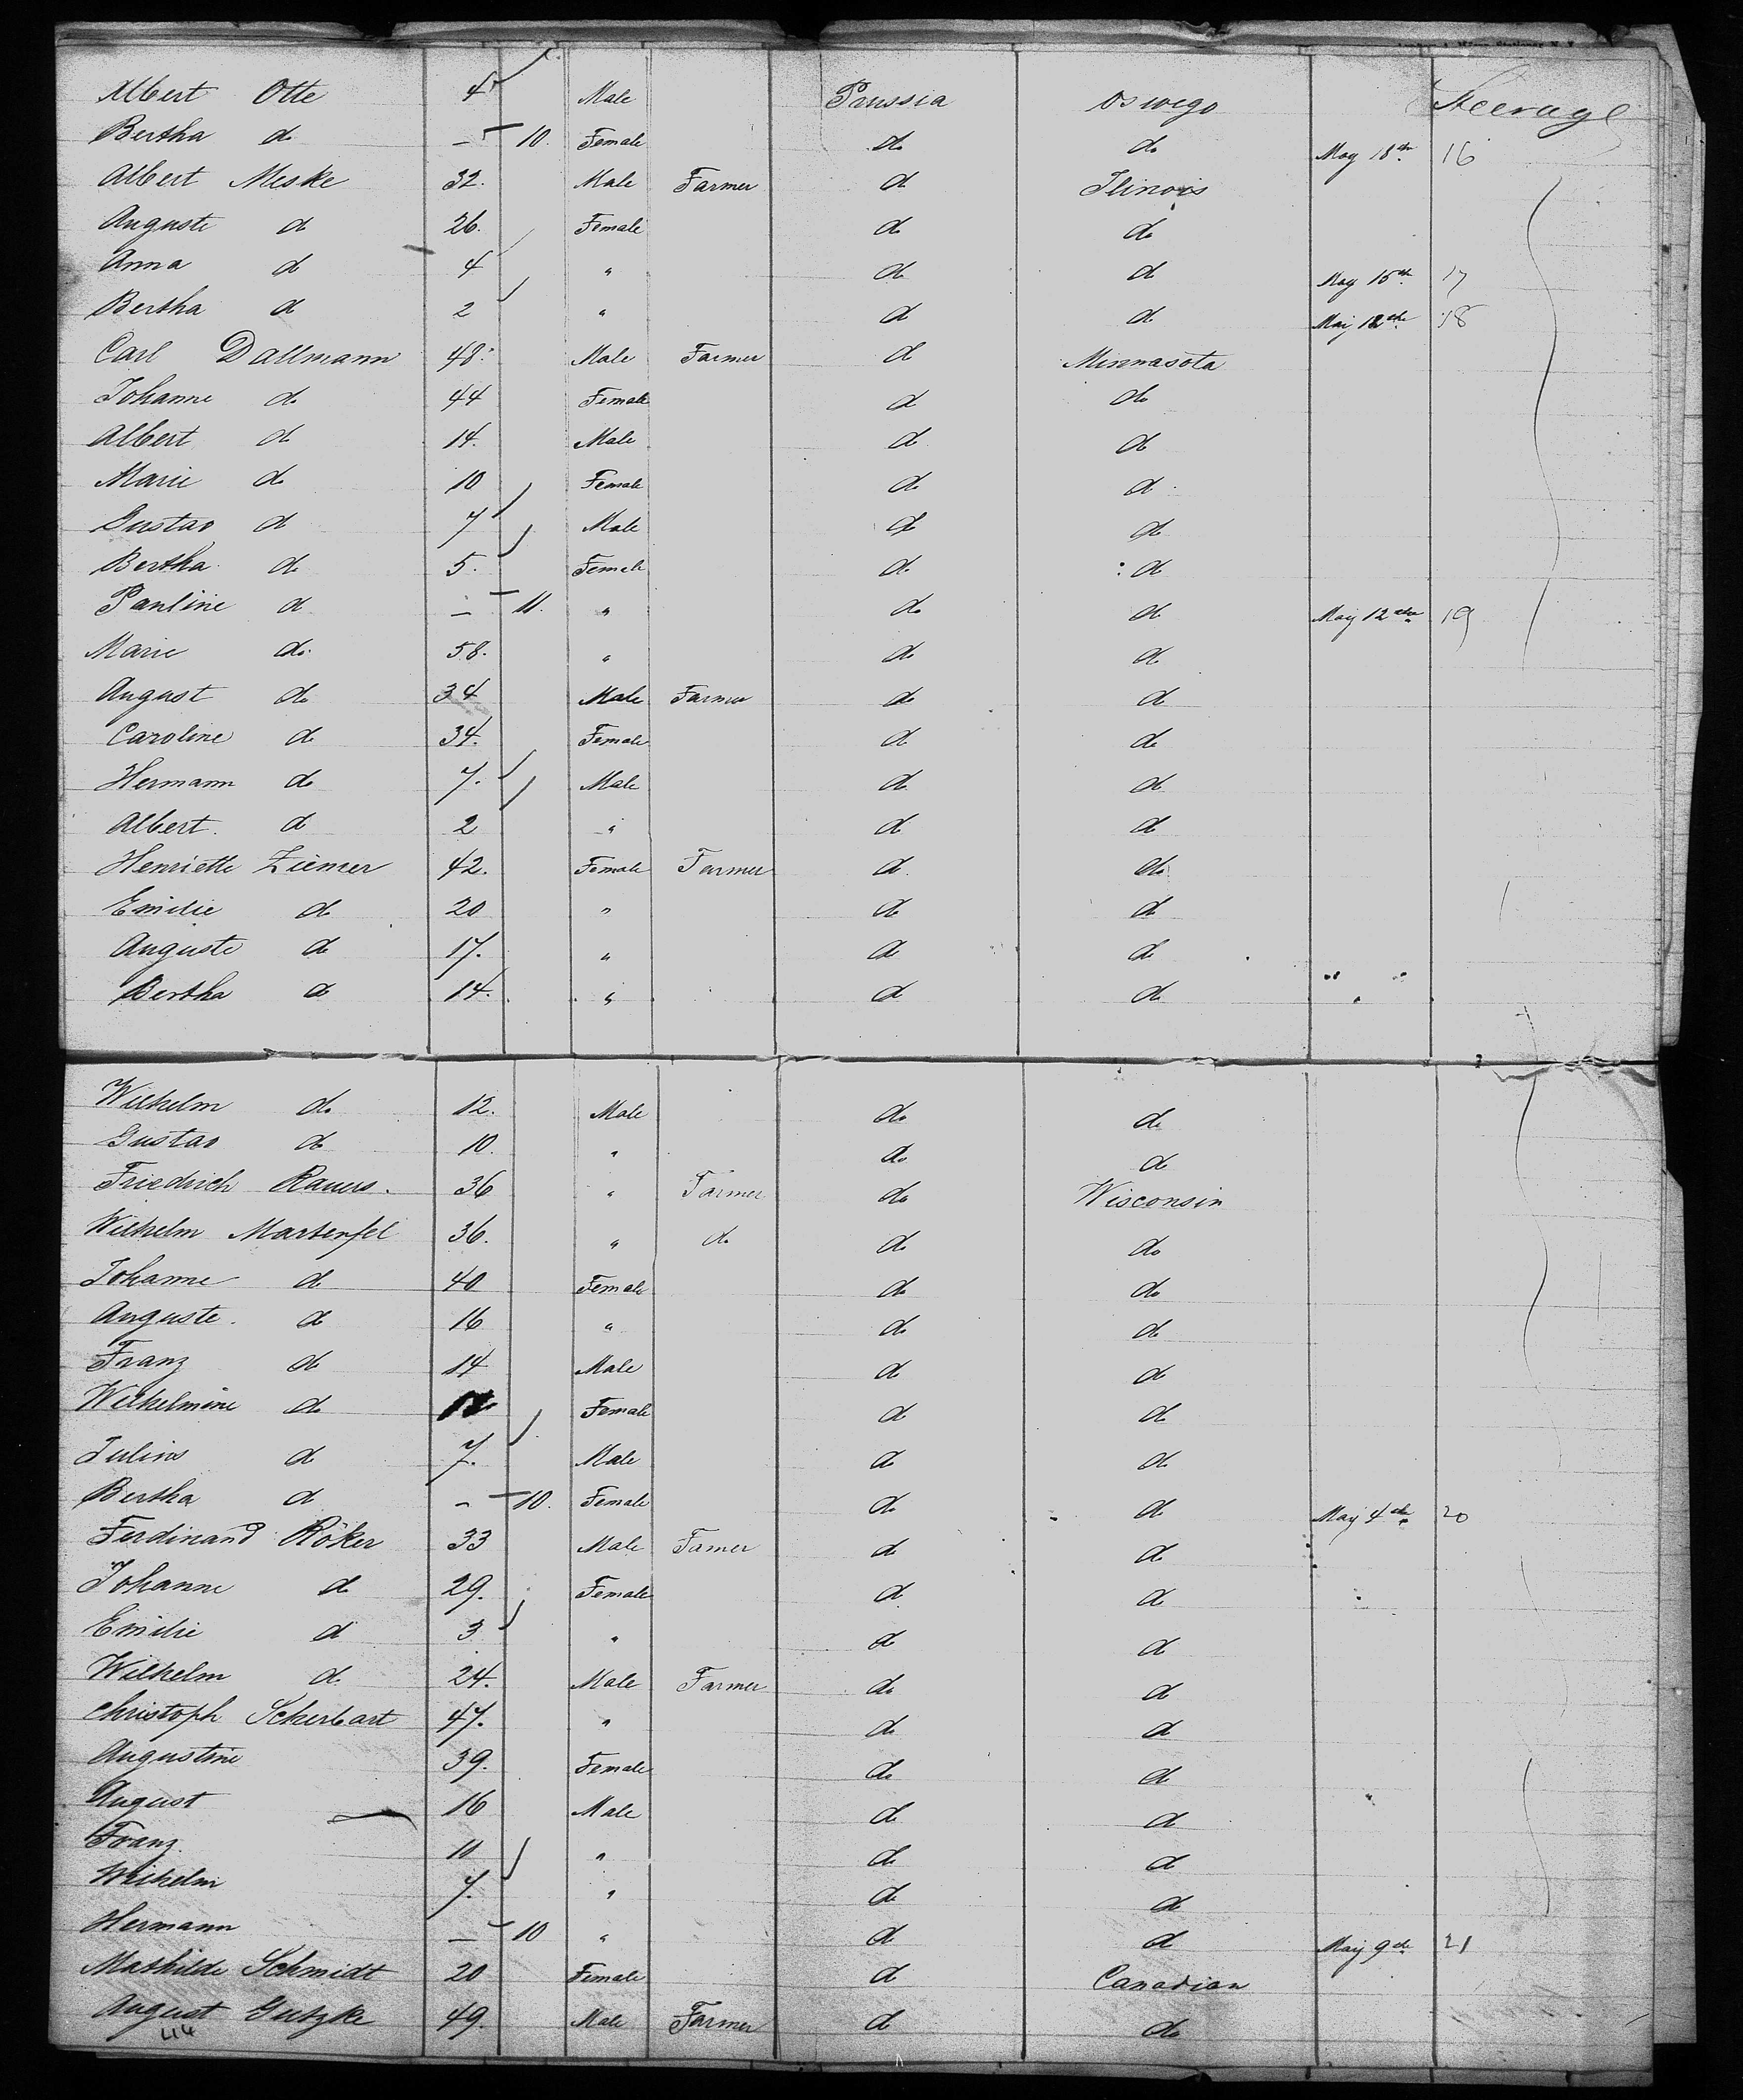 Albert Otte 4 Male Prussia Oswego Steerage
Bertha do — 10. Female do do May 18th 16
Albert Meske 32. Male Farmer do Ilinois
Auguste do 26. Female do do
Anna do 4 " do do May 15th 17
Bertha do 2 " do do May 12th 18
Carl Dallmann 48. Male Farmer do Minnasota
Johanne do 44 Female do do
Albert do 14. Male do do
Marie do 10 Female do do
Gustav do 7 Male do do
Bertha do 5. Female do do
Pauline do — 11. " do do May 12th 19
Marie do 58. " do do
August do 34 Male Farmer do do
Caroline do 34. Female do do
Hermann do 7. Male do do
Albert do 2 " do do
Henriette Ziemer 42. Female Farmer do do
Emilie do 20 " do do
Auguste do 17. " do do
Bertha do 14. " do do
Wilhelm do 12. Male do do
Gustav do 10. " do do
Friedrich 36 " Farmer do Wisconsin
Wilhelm 36. " do do do
Johanne do 40 Female do do
Auguste do 16 " do do
Franz do 14 Male do do
Wilhelmine do Female do do
Julius do 7. Male do do
Bertha do — 10. Female do do May 4th 20
Ferdinand Röker 33 Male Famer do do
Johanne do 29. Female do do
Emilie do 3 " do do
Wilhelm do 24. Male Farmer do do
Christoph Scherbart 47. " do do
Augustine 39. Female do do
August 16 Male do do
Franz 10 " do do
Wilhelm 7. " do do
Hermann — 10 " do do May 9th 21
Mathilde Schmidt 20 Female do Canadian
August Gutzke 49. Male Farmer do do